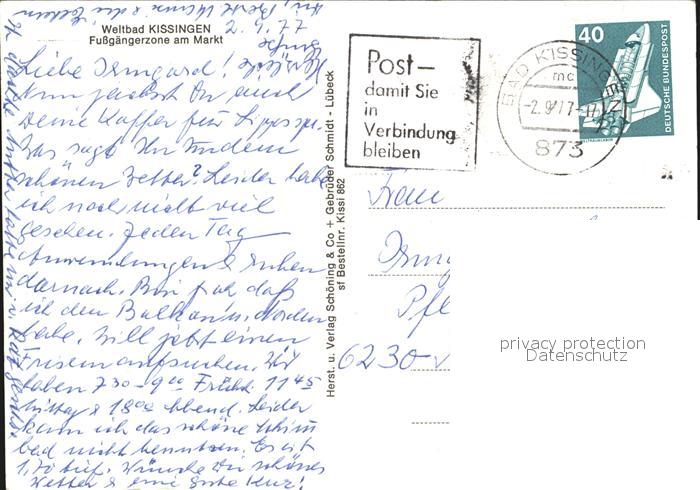 Weltbad KISSINGEN
Fußgängerzone am Markt
2.9.77
Liebe Irmgard! Herzliche
Grüße
Nun packst Du auch
Deine Koffer für Lippspr.
Was sagst Du zu dem
schönen Wetter? Leider habe
ich noch nicht viel
gesehen. Jeden Tag
Anwendungen & ruhen
darnach. Bin froh daß
ich den Balkon n. Norden
habe. Will jetzt einen
Friseur aufsuchen. Wir
haben 7 30 – 9 00 Frühst. 11 45
Mittag & 18 00 Abend. Leider
kann ich das schöne Schwimm
bad nicht benutzen. Es ist
1,70 tief. Wünsche Dir schönes
Wetter & eine gute Kur!
Herst. u. Verlag Schöning & Co + Gebrüder Schmidt - Lübeck
sf Bestellnr. Kissi 862
Post –
damit Sie
in
Verbindung
bleiben
BAD KISSINGEN
mc
-2.9.77-17
873
40
DEUTSCHE BUNDESPOST
Frau
Irmg
Pfl
6230
privacy protection
Datenschutz